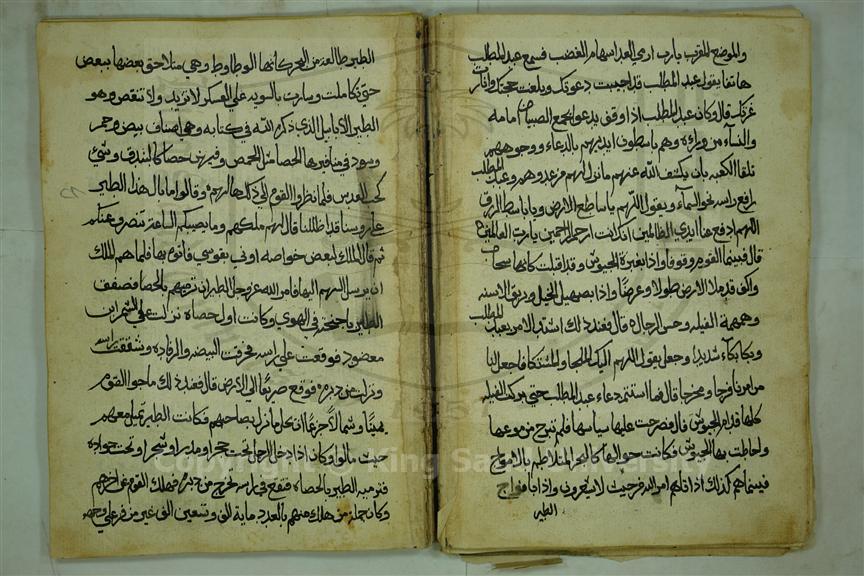 والموضع المقرب يارب ارمي العدا سهام الغضب فسمع عبد المطلب
هاتفا يقول يا عبد المطلب قد اجيبت دعوتك وبلغت حجتك وانارت
غرتك قال وكان عبد المطلب اذا وقف يدعو الجمع الصبيان امامه
والنسآء من ورآءه وهم باسطون ايديهم بالدعاء ووجوههم
تلقا الكعبه بان يكشف الله عنهم ما نزل بهم وعبد المطلب
رافع راسه نحو السمآء ويقول اللهم يا ساطع الارض ويا باسط الرزق
اللهم ادفع عنا ايدي الظالمين انك انت ارحم الراحمين يا رب العالمين
قال فبينما القوم وقوفا واذا بغبرة الجيوش وقد اقبلت كانها سحاب
واكف قد ملا الارض طولا وعرضا واذا بصهيل الخيل وبريق الاسنه
وهمهمة الفيله وحس الرجال قال فعند ذلك اشتد الامر بعبد المطلب
وبكا بكآء شديدا وجعل يقول اللهم اليك الملجا والمشتكا فاجعل لنا
من امرنا فرجا ومخرجا قال فما استتم دعاء عبد المطلب حتي بركت الفيله
كلها قدام الجيوش قال فصرخت عليها سياسها فلم تبرح من موضعها
واحاطت بها الجيوش فكانت حوالها كالبحر المتلاطم بالامواج
فبينماهم كذلك اذ اتاهم امر الله من حيث لا يشعرون واذا بافواج
الطير
الطير وطالعه من البحر كانها الوطاوط وهي متلاحق بعضها ببعض
حتي تكاملت وسارت بالسويه علي العسكر لا تزيد ولا تنقص وهو
الطير الابابيل الذي ذكره الله في كتابه وهي اصناف بيض وحمر
وسود في مناقيرها الحصا مثل الحمص وفيهم حصا كالبندق وشي
كحب العدس فلما نظروا القوم الي ذلك هالهم وقالوا ما بال هذا الطير
علي روسنا قد اظلنا قال لهم ملكهم وما يصيبكم الساعة تنصرف عنكم
ثم قال الملك لبعض خواصه اوتي بقوسي فاتوه بها فلما هم الملك
ان يرسل السهم اليها فامر الله عز وجل الطير ان ترميهم بالحصا فصفف
الطير باجنحته في الهوي وكانت اول حصاه نزلت علي الشمر ابن
مقصود فوقعت علي راسه فخرقت البيضه والرفاده وشققت راسه
ونزلت من دبره فوقع صريعا الي الارض قال فعند ذلك ماجوا القوم
يمينا وشمالا جزعا مما حل ونزل بصاحبهم فكانت الطير تميل معهم
حيث مالوا وكان اذا دخل الرجل تحت حجر او مدر او شجر او تحت جواده
فترميه الطير بالحصاه فتقع في راسه تخرج من دبره فهلك القوم عن اخرهم
وكان جملة من هلك منهم بالعدد ماية الف وتسعين الف غير من فر علي وجهه